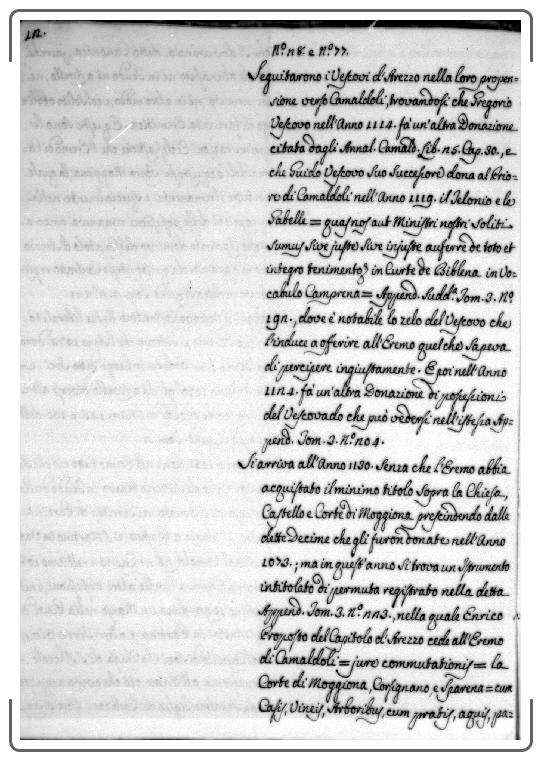 12.
N.º 28. e N.º 77.
Seguitarono i Vescovi d'Arezzo nella loro propen-
sione verso Camaldoli, trovandosi che Gregorio
Vescovo nell'Anno 1114. fa un'altra Donazione
citata dagli Annal. Camald. Lib. 25. Cap. 30., e
che Guido Vescovo Suo Successore dona al Prio-
re di Camaldoli nell'Anno 1119. il Telonio e le
Gabelle = quas nos aut Ministri nostri Soliti
Sumus Sive juste Sive injuste auferre de toto et
integro tenimento in Curte de Biblena in Vo-
cabulo Camprena = Append. Sudd.ª Tom. 3. N.º
192., dove è notabile lo zelo del Vescovo che
l'induce a offerire all'Eremo quel che Sapeva
di percipere ingiustamente. E poi nell'Anno
1124. fa un'altra Donazione di possessioni
del Vescovado che può vedersi nell'istessa Ap-
pend. Tom. 3. N.º 204.
Si arriva all'Anno 1130. Senza che l'Eremo abbia
acquistato il minimo titolo Sopra la Chiesa,
Castello e Corte di Moggiona prescindendo dalle
dette Decime che gli furon donate nell'Anno
1073.; ma in quest'anno Si trova un Istrumento
intitolato di permuta registrato nella detta
Append. Tom. 3. N.º 223., nella quale Enrico
Proposto del Capitolo d'Arezzo cede all'Eremo
di Camaldoli = jure commutationis = la
Corte di Moggiona, Corsignano, e Sparena = cum
Casis, Vineis, Arboribus, cum pratis, aquis, pa-